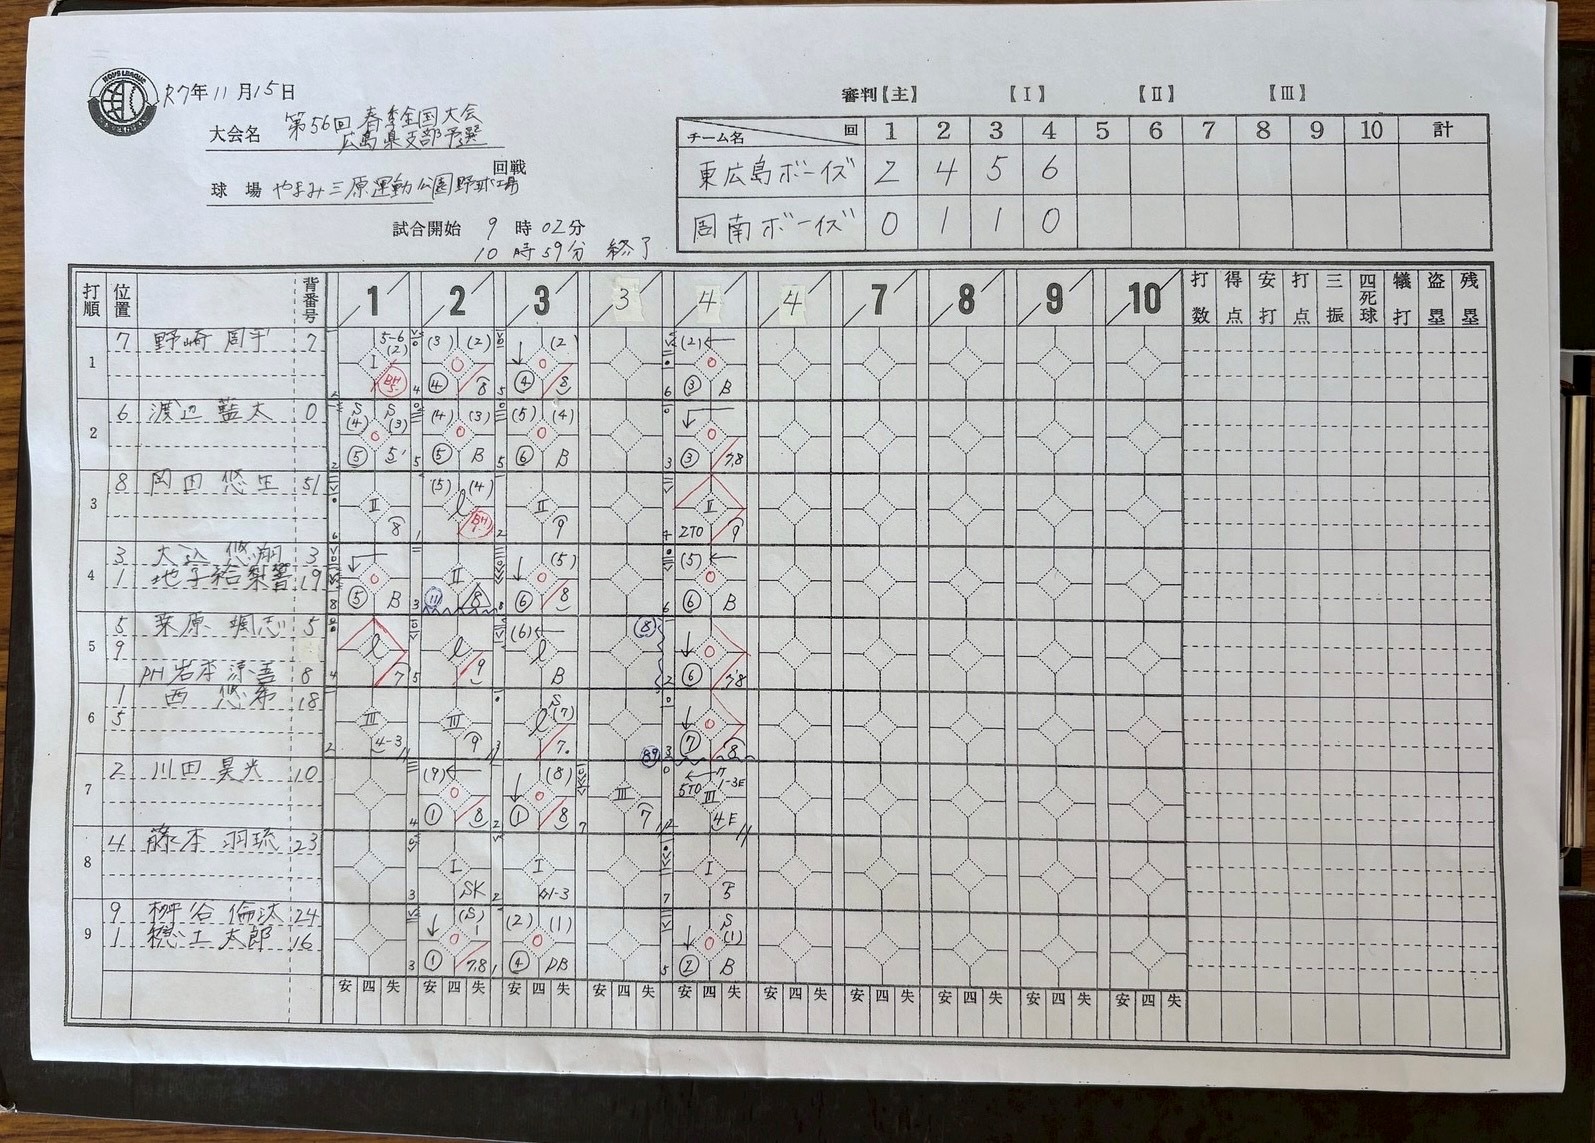 BOYS LEAGUE
R7年 11月15日
大会名 第56回 春季全国大会
広島県支部予選
回戦
球場 やまみ三原運動公園野球場
試合開始 9時02分
10時59分 終了
審判【主】 【Ⅰ】 【Ⅱ】 【Ⅲ】
チーム名 回 1 2 3 4 5 6 7 8 9 10 計
東広島ボーイズ 2 4 5 6
周南ボーイズ 0 1 1 0
打順 位置 背番号 1 2 3 3 4 4 7 8 9 10 打数 得点 安打 打点 三振 四死球 犠打 盗塁 残塁
1 7 野崎 7
5-6 (2) Ⅰ BH 5 (3) (2) 4 8 (2) 4 8 (2) 3 B
2 6 渡辺 藍太 0
S (4) S (3) 5 5 (4) (3) 5 B (5) (4) 6 B 3 7,8
3 8 岡田 悠生 51
Ⅱ 8 (5) (4) l BH 1 Ⅱ 9 Ⅱ 2TO 9
4 3 大込 悠翔 3
1 19
5 B Ⅱ 11 8 (5) 6 8 (5) 6 B
5 5 栗原 颯志 5
9
PH 岩本 涼吾 8
l 7 l 9 (6) l B 8 6 7,8
6 1 西 悠希 18
5
Ⅲ 4-3 Ⅲ 9 S (7) l 7 7 8
7 2 川田 昊光 10
(9) 1 8 (8) 1 8 Ⅲ 7 5TO 1-3E Ⅲ 4E
8 4 藤本 羽琉 23
Ⅰ SK Ⅰ 1-3 Ⅰ 5
9 9 桝谷 倫汰 24
1 太郎 16
(S) 1 1 7,8 (2) (1) 4 DB S (1) 2 B
安 四 失 安 四 失 安 四 失 安 四 失 安 四 失 安 四 失 安 四 失 安 四 失 安 四 失 安 四 失